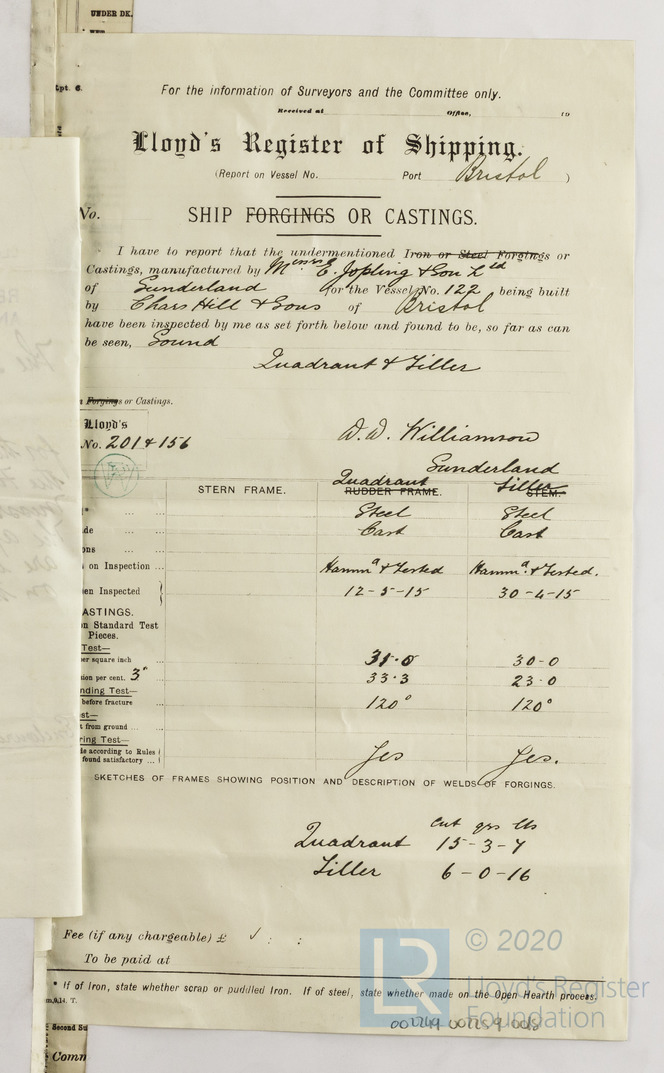 UNDER DK.
Rpt. 6.
For the information of Surveyors and the Committee only.
Received at Office, 19
Lloyd's Register of Shipping.
(Report on Vessel No. Port Bristol )
No.
SHIP FORGINGS OR CASTINGS.
I have to report that the undermentioned Iron or Steel Forgings or
Castings, manufactured by Messrs E. Jopling & Son Ltd
of Sunderland for the Vessel No. 122, being built
by Chars Hill & Sons of Bristol
have been inspected by me as set forth below and found to be, so far as can
be seen, Sound
Quadrant & Tiller
Forgings or Castings.
Lloyd's
No. 201 & 156
W. D. Williamson
Sunderland
STERN FRAME. Quadrant RUDDER FRAME. Tiller STEM.
Steel Steel
Cast Cast
on Inspection ... Hammd & Tested Hammd & Tested.
en Inspected 12-5-15 30-4-15
ASTINGS.
n Standard Test
Pieces.
Test—
per square inch 31·0 30-0
ion per cent. 3" 33·3 23·0
nding Test—
before fracture 120° 120°
st—
t from ground ...
ring Test—
de according to Rules
found satisfactory ... Yes Yes.
SKETCHES OF FRAMES SHOWING POSITION AND DESCRIPTION OF WELDS OF FORGINGS.
Cwt qrs lbs
Quadrant 15-3-7
Tiller 6-0-16
Fee (if any chargeable) £ ✓ : :
To be paid at
* If of Iron, state whether scrap or puddled Iron. If of steel, state whether made on the Open Hearth process.
m,9,14. T.
002249 002259 0018
Second Su
Comm
LR
© 2020
Lloyd's Register
Foundation